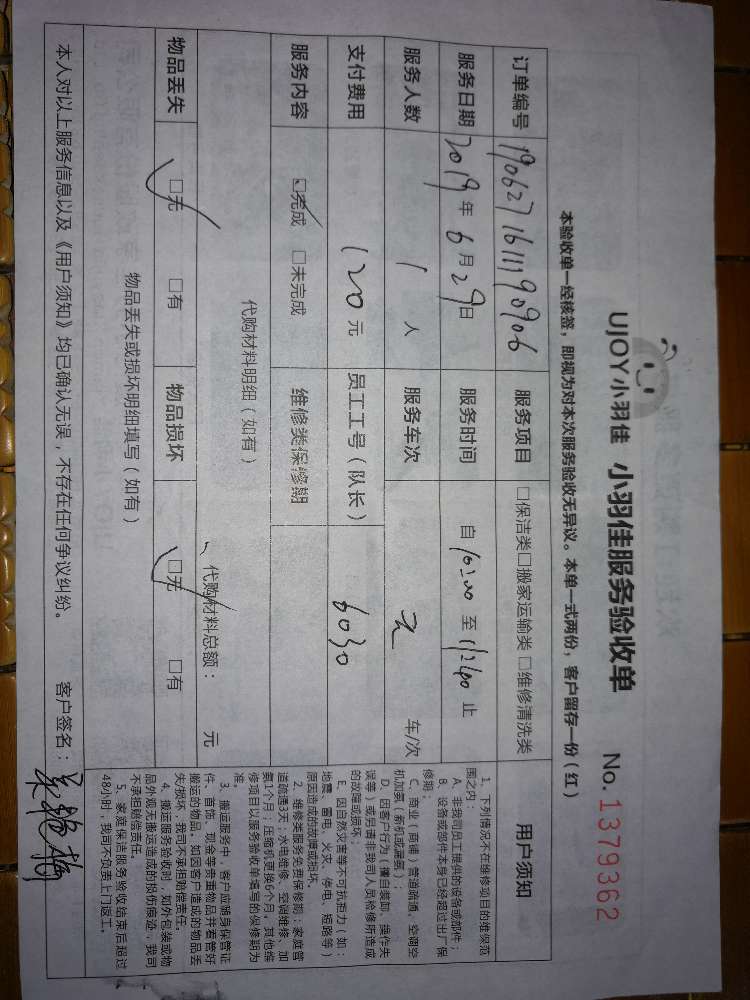 UJOY小羽佳 小羽佳服务验收单 No. 1379362
本验收单一经核签，即视为对本次服务验收无异议。本单一式两份，客户留存一份（红）
订单编号 190627161119 0906 服务项目 □保洁类□搬家运输类 □维修清洗类
服务日期 2019年6月29日 服务时间 自 至 止
服务人数 1 人 服务车次 车/次
支付费用 120 元 员工工号（队长） 6030
服务内容 ☑完成 □未完成 维修类保修期
代购材料明细（如有）
代购材料总额： 元
物品丢失 □无 □有 物品损坏 □无 □有
物品丢失或损坏明细填写（如有）
用户须知
1、下列情况不在维修项目的维保范
围之内：
A、非我司员工提供的设备或部件；
B、设备或部件本身已经超过出厂保
修期；
C、商业（商铺）管道疏通、空调空
机加氟（新机或漏氟）；
D、因客户行为（擅自装卸、操作失
误等）或另请非我司人员检修所造成
的故障或损坏；
E、因自然灾害等不可抗拒力（如：
地震、雷电、火灾、停电、短路等）
原因造成的故障或损坏。
2、维修类服务免费保修期：家庭管
道疏通3天；水电维修、空调维修、加
氟1个月；压缩机更换6个月，其他维
修项目以服务验收单填写的保修期为
准。
3、搬运服务中，客户应随身保管证
件、首饰、现金等贵重物品并看管好
搬运的物品。如因客户造成的物品丢
失/损坏，我司不承担赔偿责任。
4、搬运服务验收时，如外包装或物
品外观无搬运造成的损伤痕迹，我司
不承担赔偿责任。
5、家庭保洁服务验收结束后超过
48小时，我司不负责上门返工。
本人对以上服务信息以及《用户须知》均已确认无误，不存在任何争议纠纷。 客户签名：